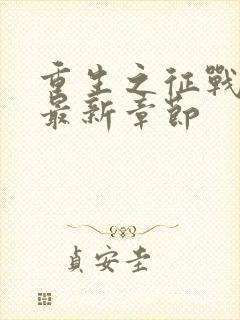 重生之征戰
最新章節
貞安圭